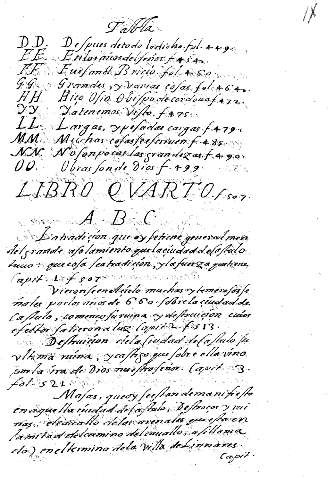 Tabla
D.D. Despues de todo lo dicho fol. 449.
E.E. En los años del señor f. 454.
F.F. Fue sant Bricio fol. 460.
GG. Grandes, y varias cosas fol. 464.
HH Hizo Osio Obispo de cordova f. 472.
YY Ya tenemos Visto. f. 475.
LL. Largas, y pesadas cargas f. 479.
MM. Muchas cosas se escriven f. 485.
NN. No son pocas las grandezas f. 490.
OO. Obras son de Dios f. 499.
LIBRO QVARTO f. 507.
A B C
La tradicion que oy se tiene general
del grande asolamiento que la ciudad de Castulo
tuvo: que cosa sea tradicion, y la fuerza que tiene
Capit. 1. f. 507
Vieronse en el cielo muchas y temerosas se
ñales por los años de 660. sobre la ciudad de
Castulo, comenzo su ruina y destruicion cuios
efectos salieron a luz Capit. 2. f. 513.
Destruicion de la ciudad de Castulo su
vltima ruina, y castigo que sobre ella vino
con la ira de Dios nuestro señor. Capit. 3.
fol. 521.
que oy se estan de manifiesto
en aquella ciudad de Castulo, Destrocos y rui
nas, el de las arenas que esta en
la mitad del camino del assi llama
do) en el termino de la Villa de Linnares.
Capit.